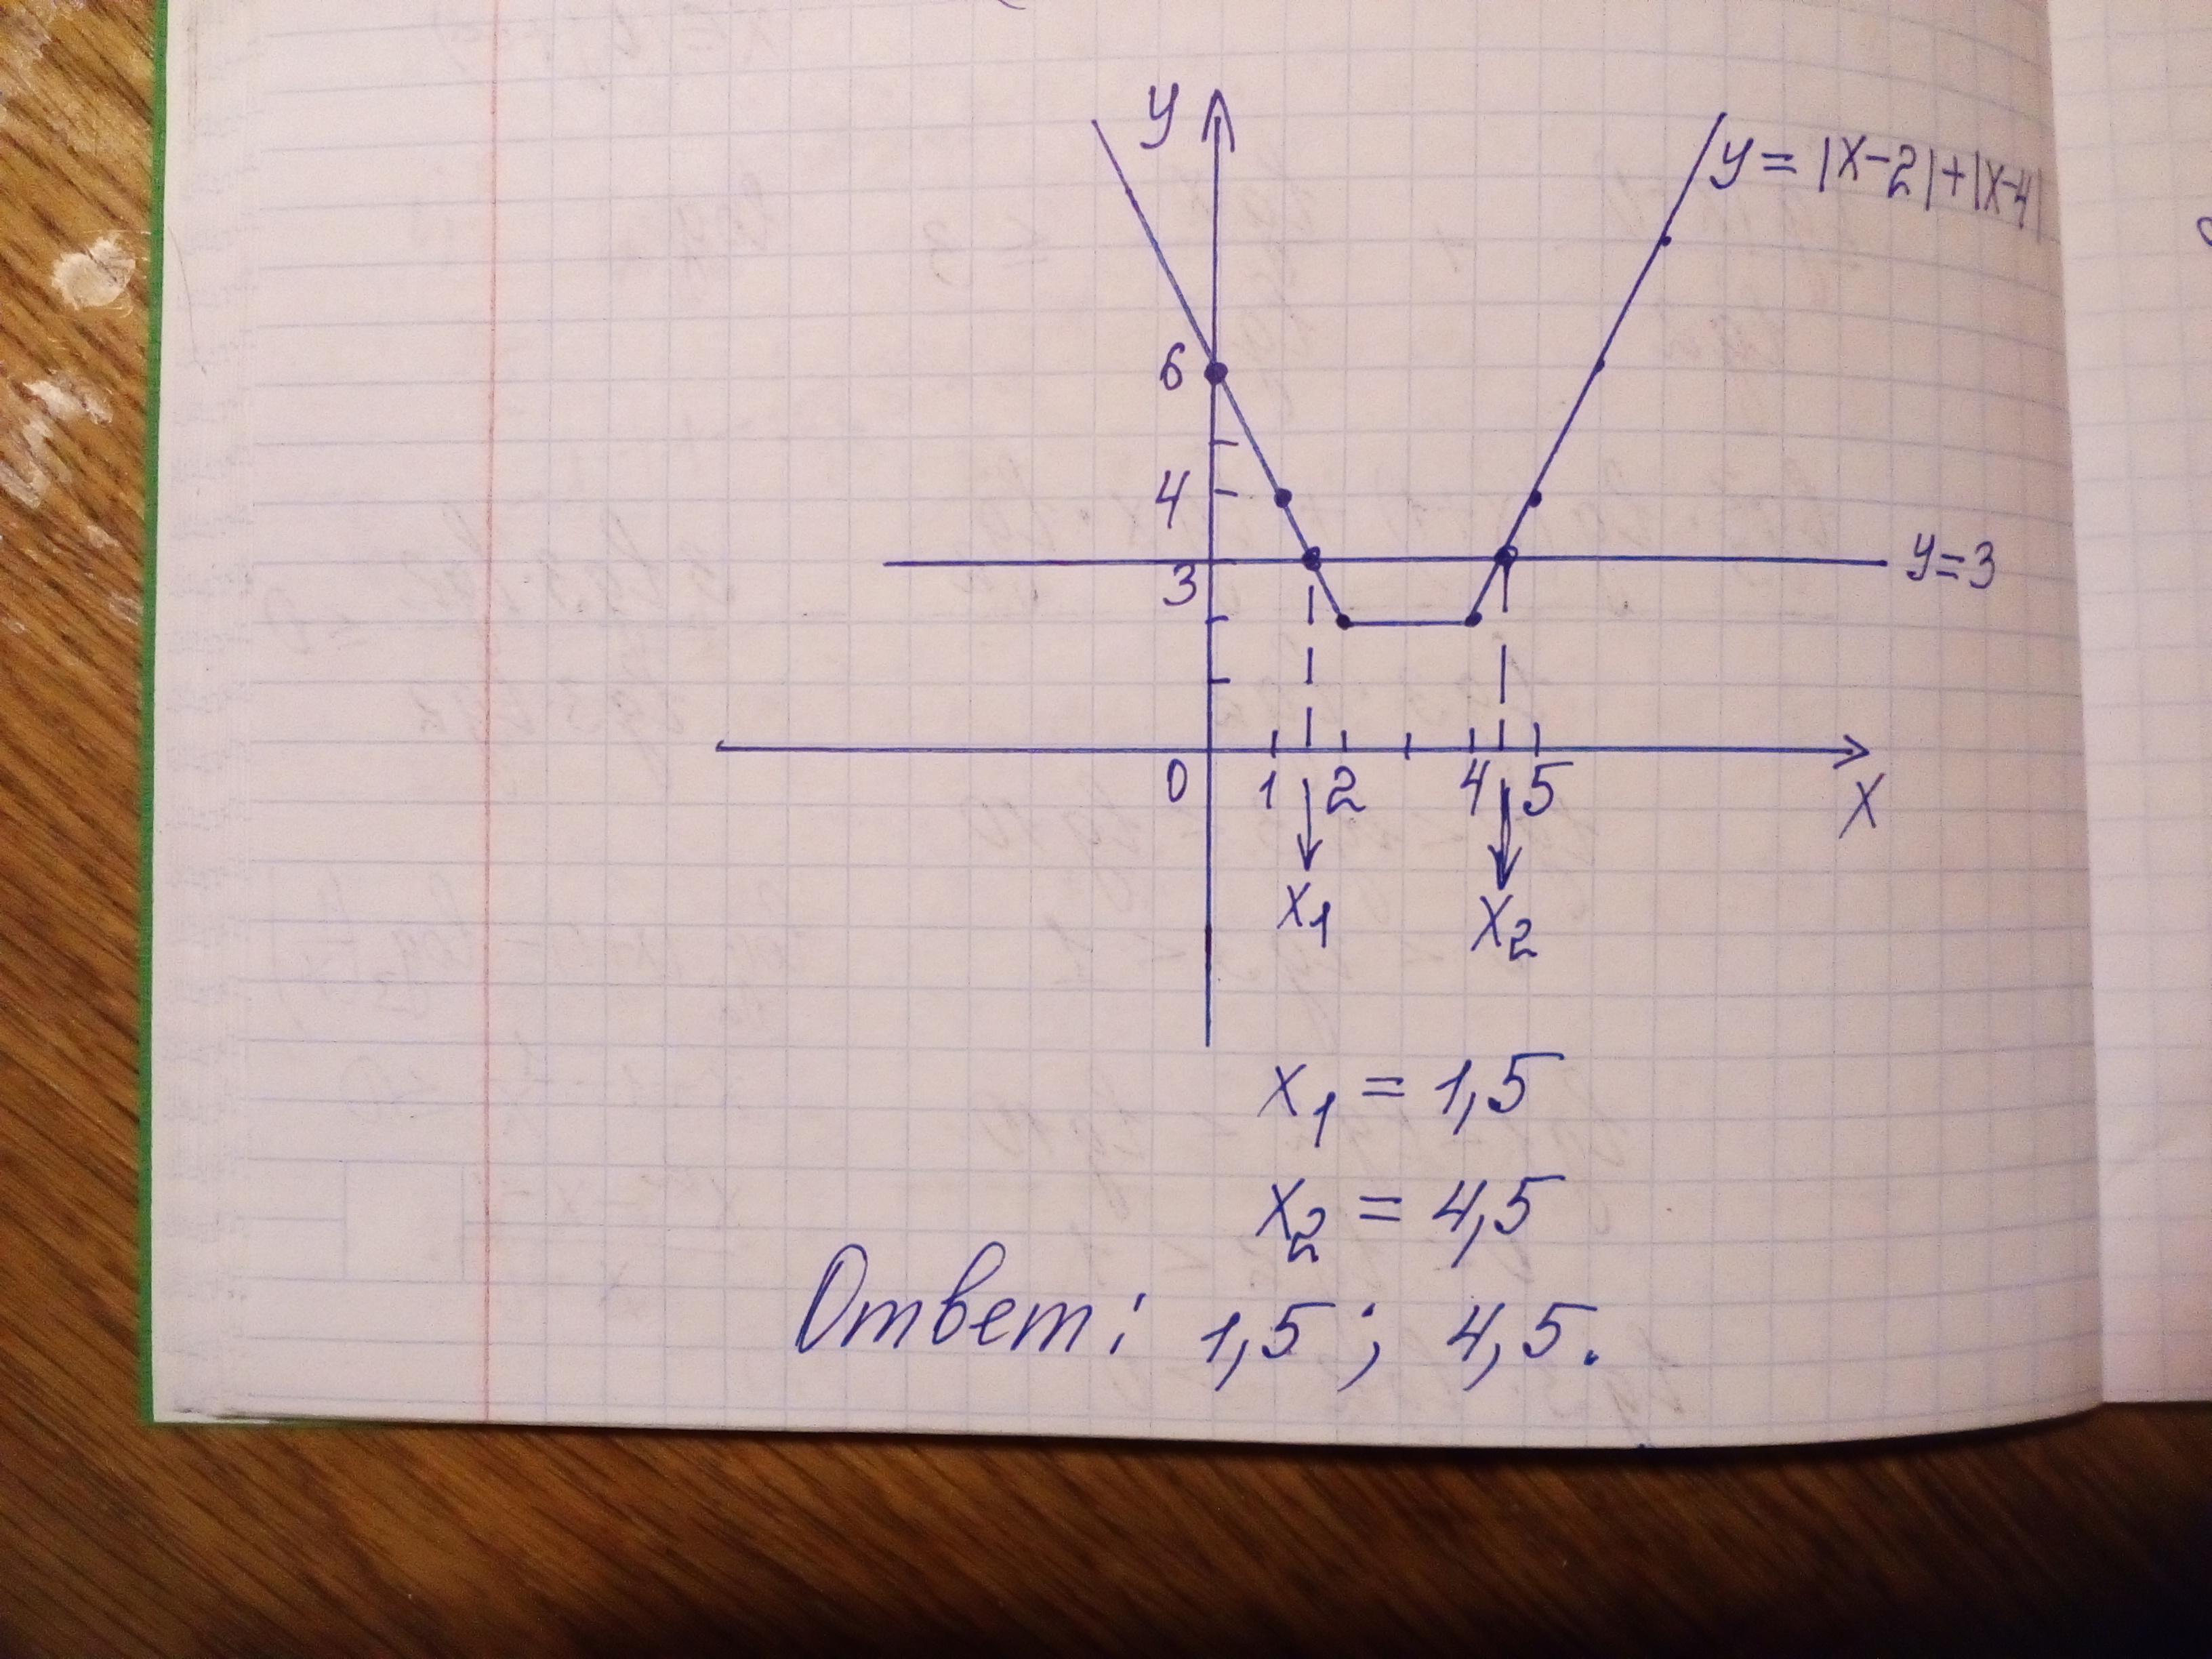 y
y = |x-2|+|x-4|
6
4
y=3
3
0 1 2 4 5
x
x1 x2
x1 = 1,5
x2 = 4,5
Ответ: 1,5; 4,5.